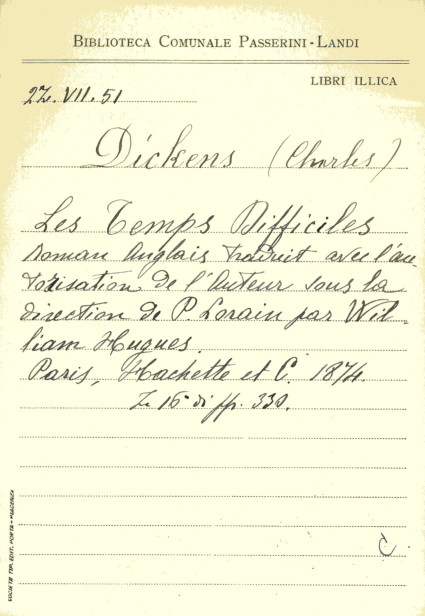 BIBLIOTECA COMUNALE PASSERINI-LANDI
LIBRI ILLICA
22.VII.51
Dickens (Charles)
Les Temps Difficiles
Roman Anglais traduit avec l'au-
torisation de l'Auteur sous la
direction de P. Lorain par Wil-
liam Hugues.
Paris, Hachette et C. 1874.
In 16° di pp. 330.
C
SOCIETÀ TIP. EDIT. PORTA - PIACENZA